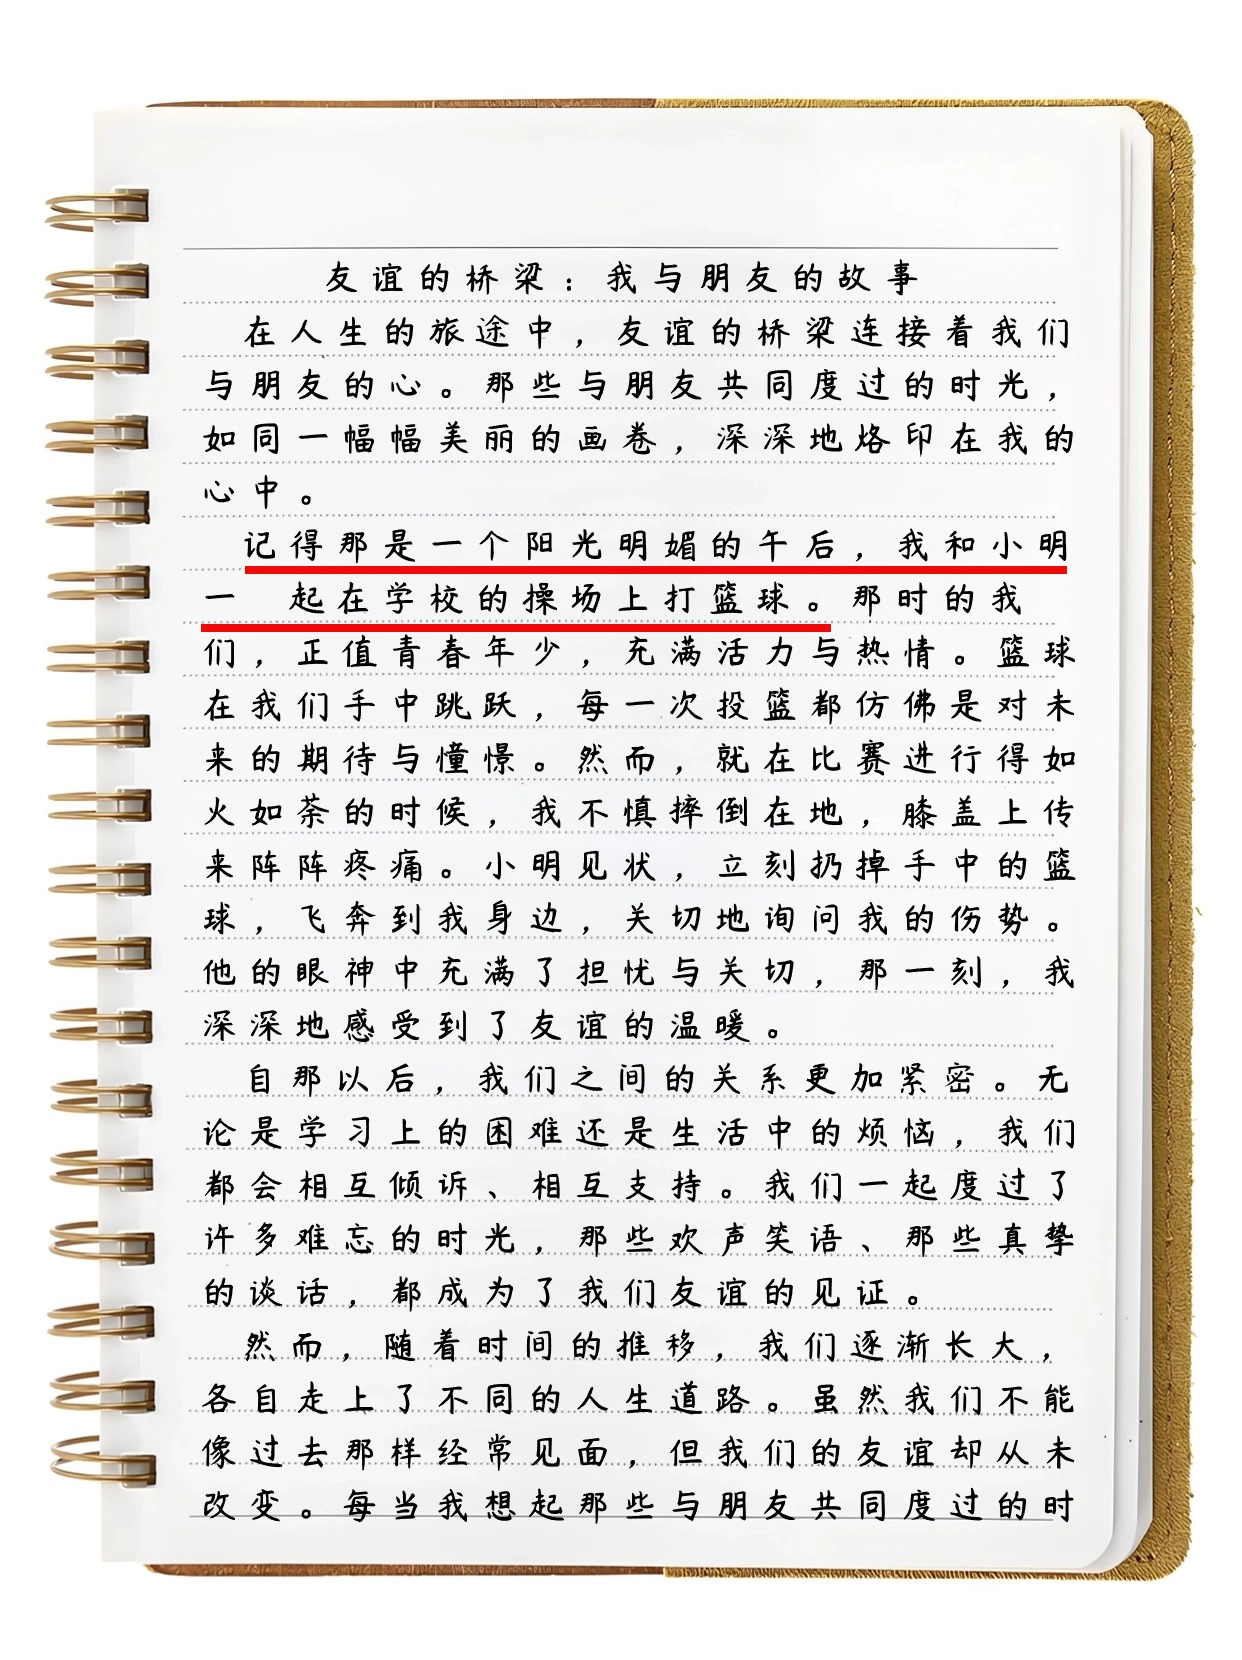 友谊的桥梁：我与朋友的故事
在人生的旅途中，友谊的桥梁连接着我们
与朋友的心。那些与朋友共同度过的时光，
如同一幅幅美丽的画卷，深深地烙印在我的
心中。
记得那是一个阳光明媚的午后，我和小明
一 起在学校的操场上打篮球。那时的我
们，正值青春年少，充满活力与热情。篮球
在我们手中跳跃，每一次投篮都仿佛是对未
来的期待与憧憬。然而，就在比赛进行得如
火如荼的时候，我不慎摔倒在地，膝盖上传
来阵阵疼痛。小明见状，立刻扔掉手中的篮
球，飞奔到我身边，关切地询问我的伤势。
他的眼神中充满了担忧与关切，那一刻，我
深深地感受到了友谊的温暖。
自那以后，我们之间的关系更加紧密。无
论是学习上的困难还是生活中的烦恼，我们
都会相互倾诉、相互支持。我们一起度过了
许多难忘的时光，那些欢声笑语、那些真挚
的谈话，都成为了我们友谊的见证。
然而，随着时间的推移，我们逐渐长大，
各自走上了不同的人生道路。虽然我们不能
像过去那样经常见面，但我们的友谊却从未
改变。每当我想起那些与朋友共同度过的时